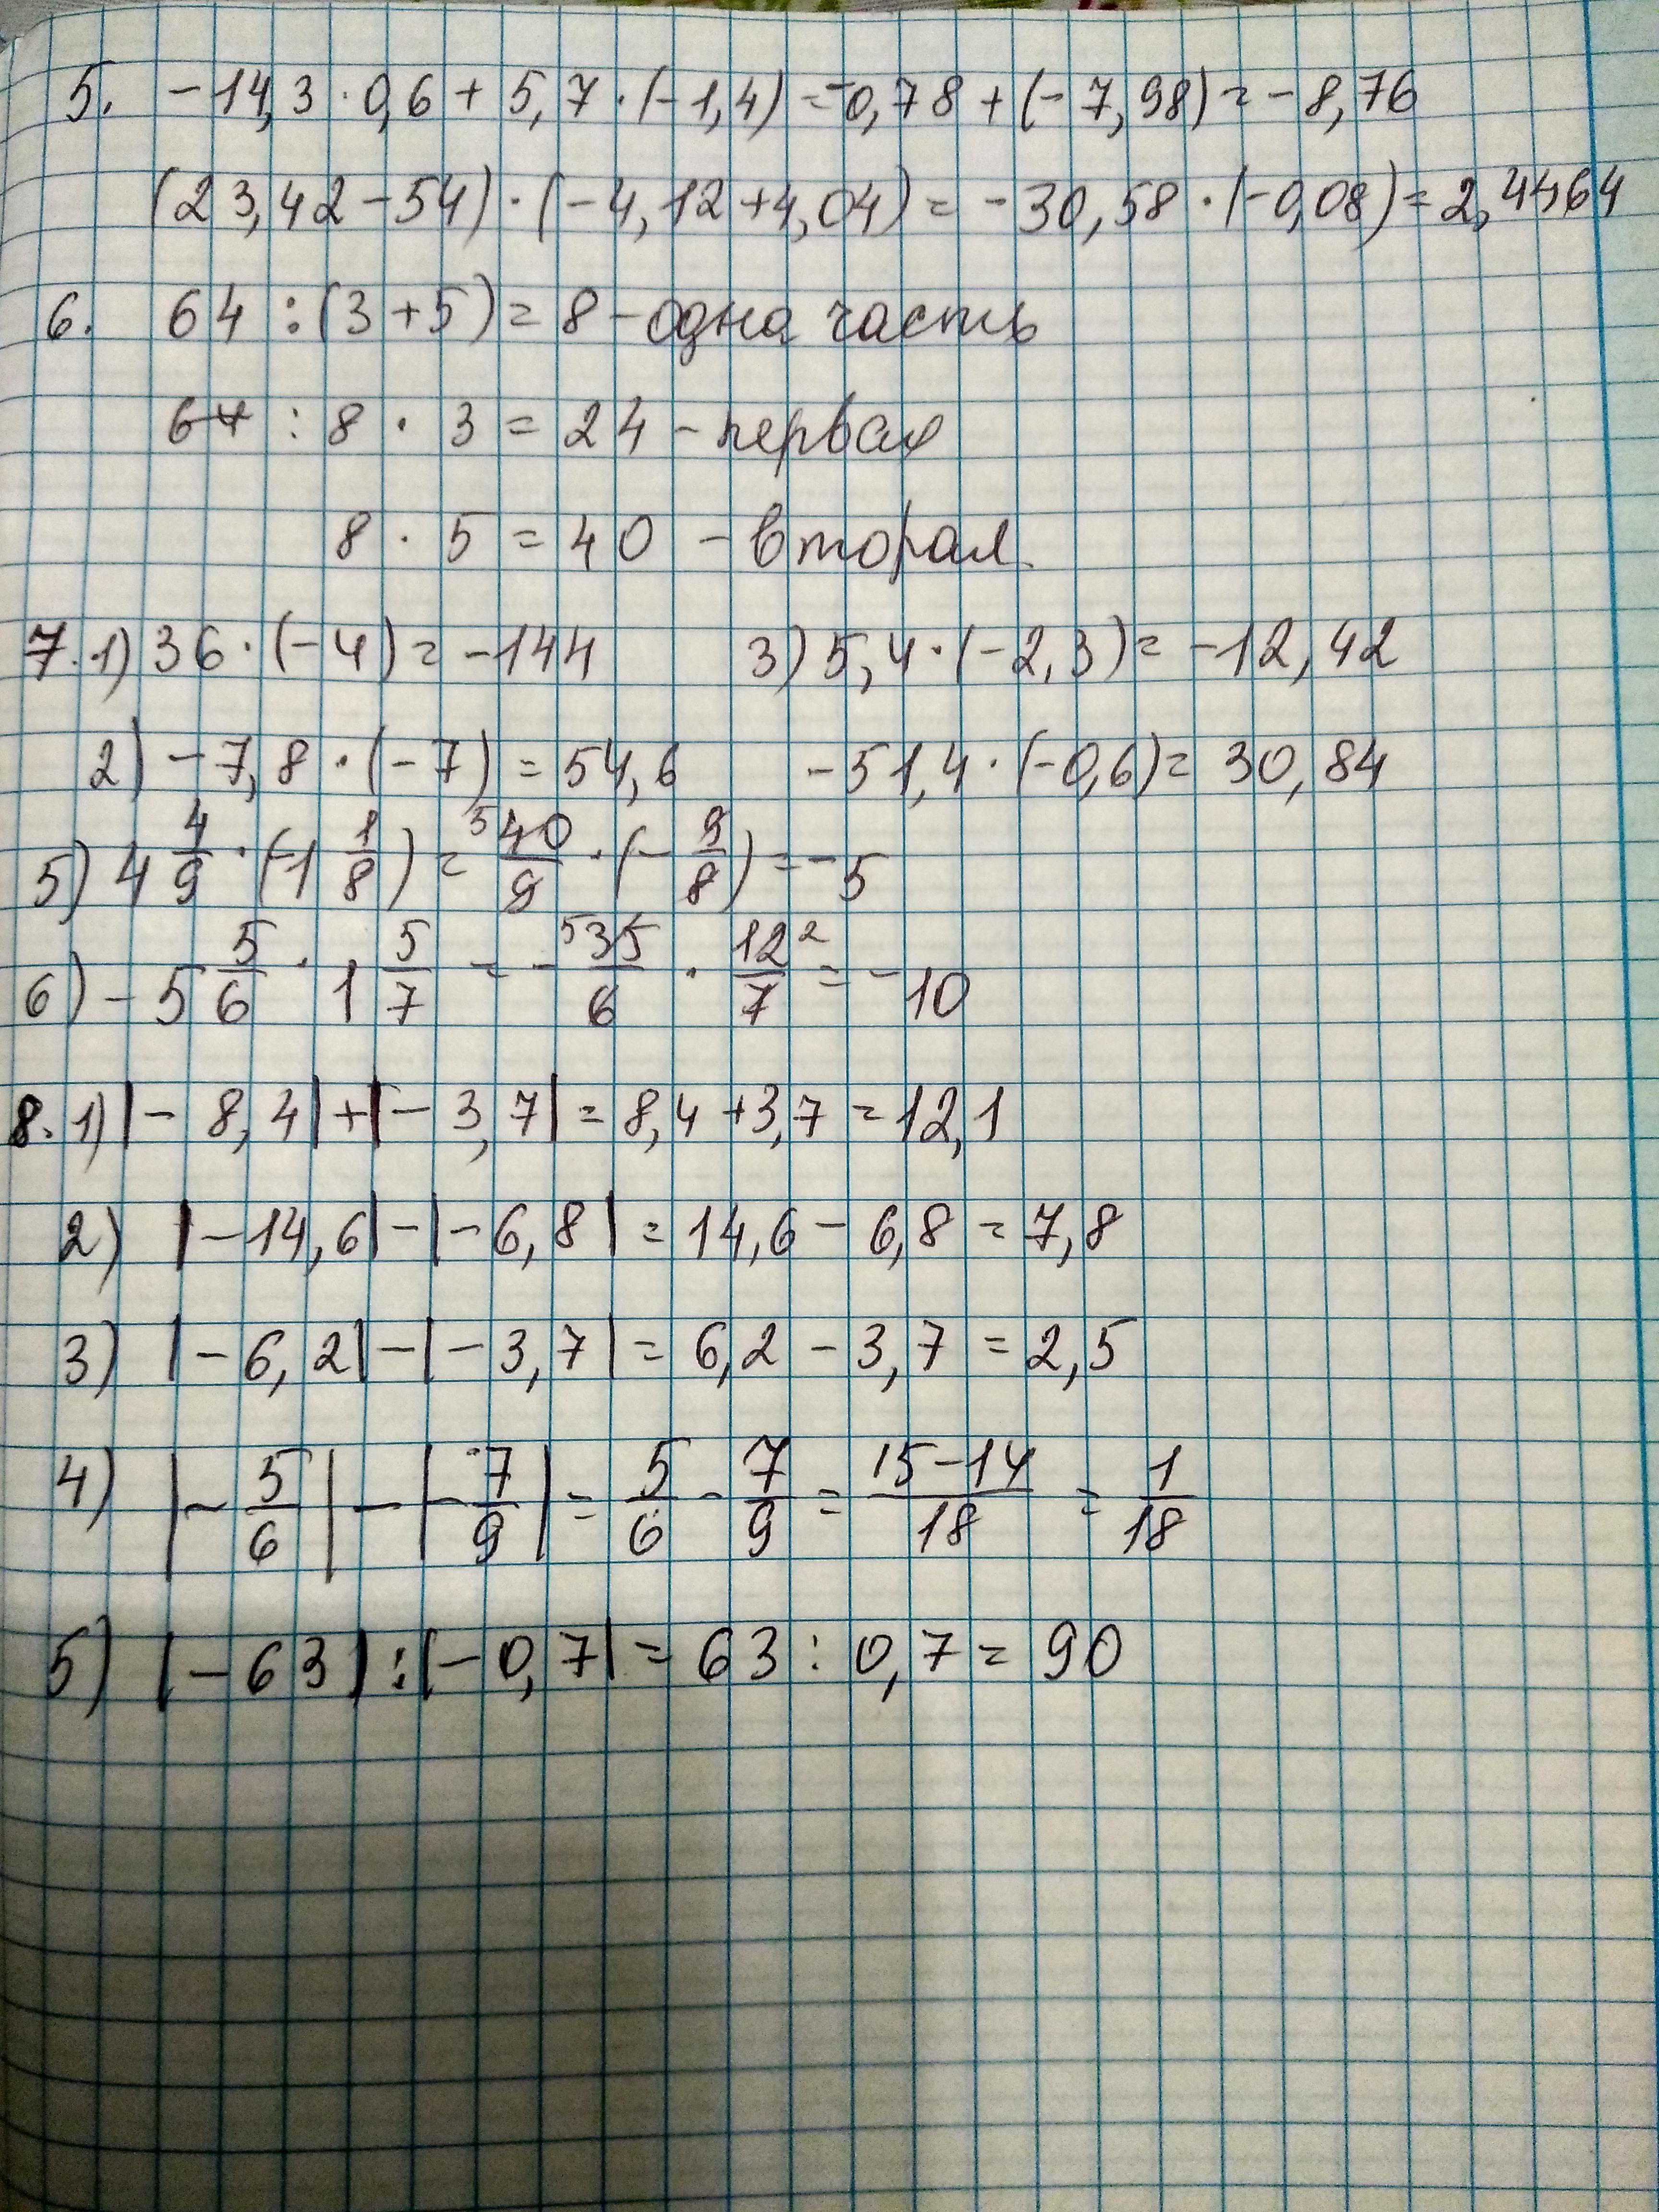 5. -14,3·0,6+5,7·(-1,4)=-0,78+(-7,98)=-8,76
(23,42-54)·(-4,12+4,04)=-30,58·(-0,08)=2,4464
6. 64:(3+5)=8-одна часть
64:8·3=24-первая
8·5=40-вторая
7.1)36·(-4)=-144 3)5,4·(-2,3)=-12,42
2)-7,8·(-7)=54,6 -51,4·(-0,6)=30,84
5)4 4/9·(-1 1/8)=5 40/9·(-9/8)=-5
6)-5 5/6·1 5/7=-5 35/6·12/7 2=-10
8.1)|-8,4|+|-3,7|=8,4+3,7=12,1
2)|-14,6|-|-6,8|=14,6-6,8=7,8
3)|-6,2|-|-3,7|=6,2-3,7=2,5
4)|-5/6|-|-7/9|=5/6-7/9=15-14/18=1/18
5)|-63|:|-0,7|=63:0,7=90